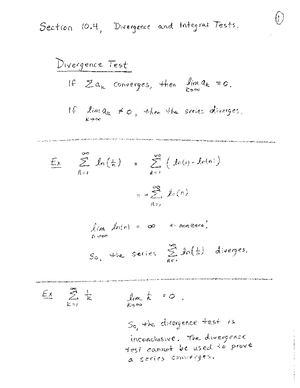 ①
Section 10.4, Divergence and Integral Tests.
Divergence Test
If Σaₖ converges, then lim aₖ = 0.
k→∞
If lim aₖ ≠ 0, then the series diverges.
k→∞
Ex ∞ Σ n=1 ln(1/n) = ∞ Σ n=1 (ln(1) - ln(n))
= - ∞ Σ n=1 ln(n)
lim ln(n) = ∞ ← nonzero!
n→∞
So, the series ∞ Σ n=1 ln(1/n) diverges.
Ex ∞ Σ k=1 1/k lim 1/k = 0.
k→∞
So, the divergence test is
inconclusive. The divergence
test cannot be used to prove
a series converges.